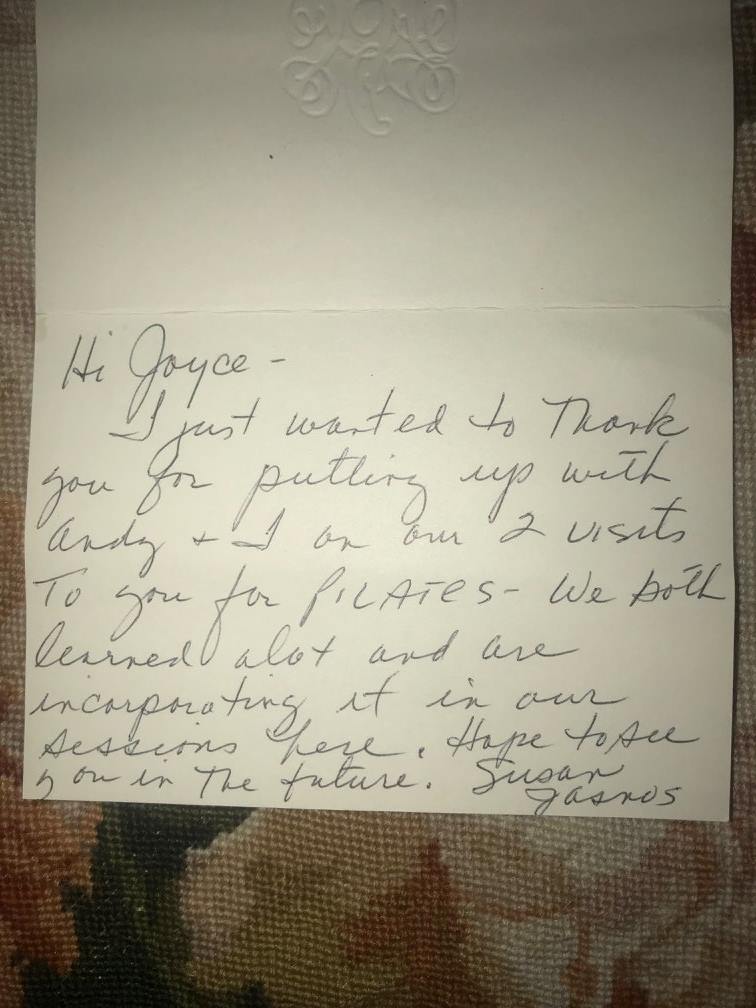 Hi Joyce -
I just wanted to Thank
you for putting up with
Andy + I on our 2 visits
To you for PILATES - We both
learned alot and are
incorporating it in our
sessions here. Hope to see
you in The future. Susan
Jasnos